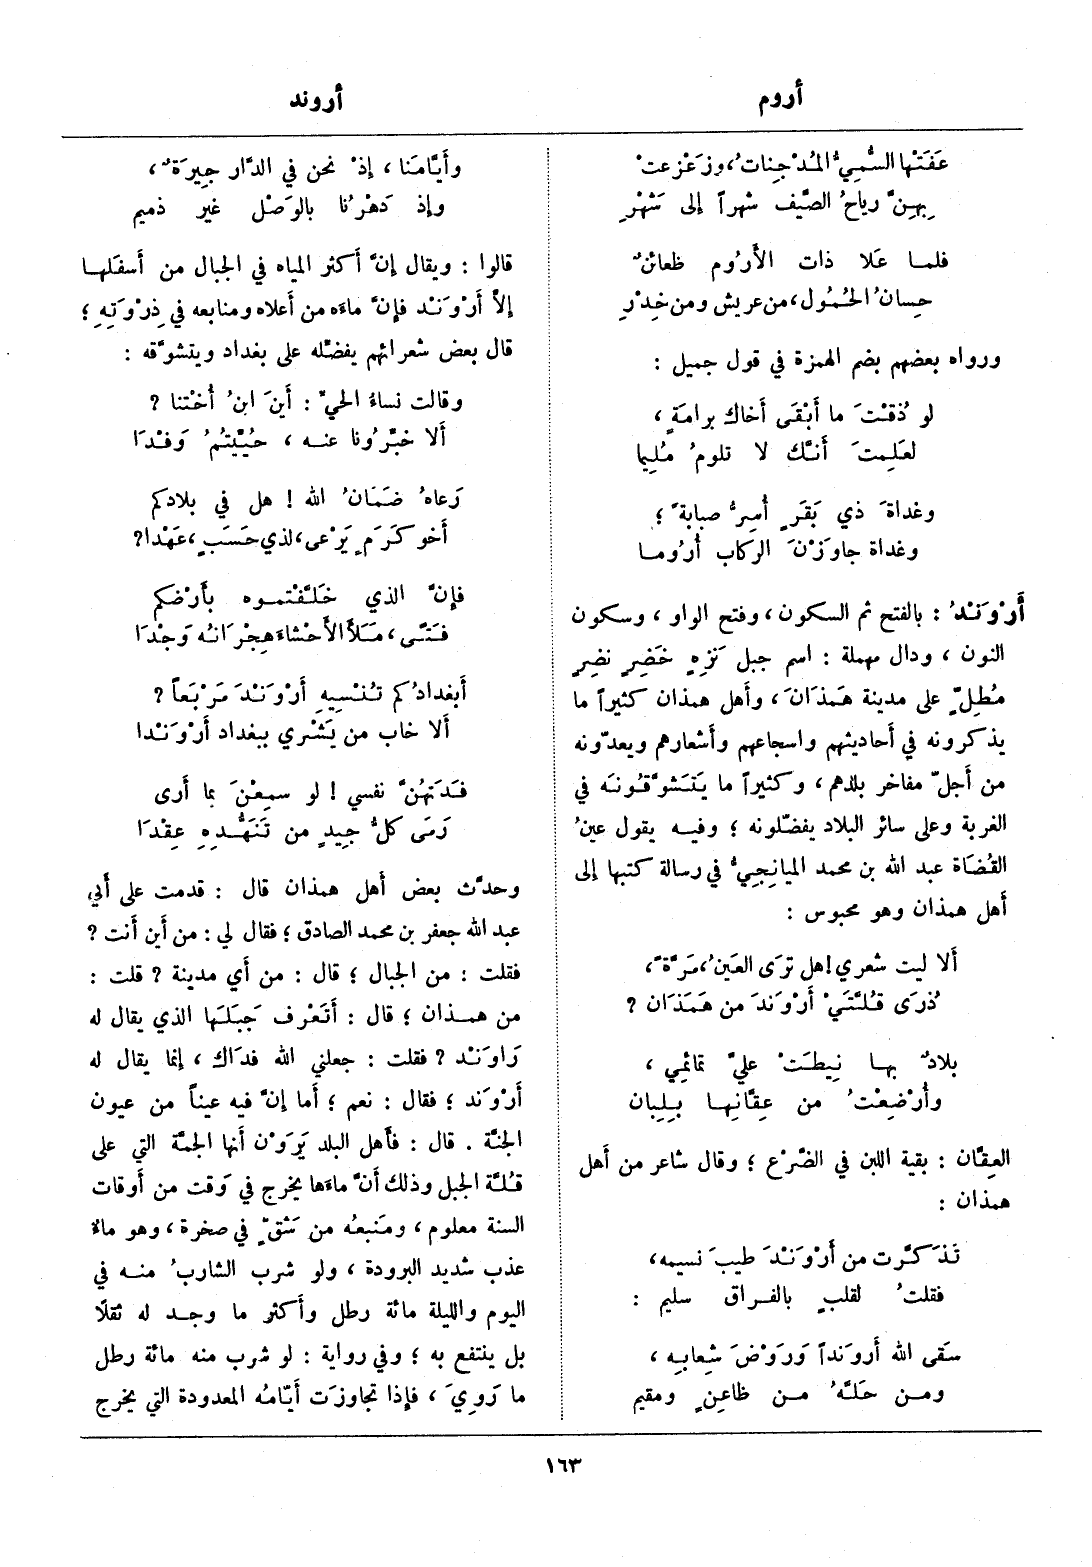 أروم
أروند
عَفَتْها السُّمِيُّ المُدْجِناتُ، وزَعْزَعتْ
بِهِنَّ رياحُ الصَّيف شهراً إلى شَهْرِ
فلما عَلا ذات الأَرُوم ظعائنٌ
حِسانُ الحُمُول، من عريش ومن خِدْرِ
ورواه بعضهم بضم الهمزة في قول جميل :
لو ذُقْتَ ما أَبْقَى أَخاك برامَةٍ،
لعَلِمتَ أَنَّك لا تلومُ مُلِيما
وغداةَ ذي بَقَرٍ أُسِرُّ صبابةً ؛
وغداة جاوَزْنَ الركاب أُرُوما
أَرْوَنْدُ : بالفتح ثم السكون ، وفتح الواو ، وسكون
النون ، ودال مهملة : اسم جبل نَزِهٍ خَضِرٍ نضِرٍ
مُطِلّ على مدينة هَمَذانَ ، وأهل همذان كثيراً ما
يذكرونه في أحاديثهم واسجاعهم وأشعارهم ويعدّونه
من أجلّ مفاخر بلدهم ، وكثيراً ما يَتَشوَّقُونَه في
الغربة وعلى سائر البلاد يفضّلونه ؛ وفيه يقول عينُ
القُضَاة عبد الله بن محمد الميانجِيُّ في رسالة كتبها إلى
أهل همذان وهو محبوس :
ألا ليت شعري! هل ترَى العَينُ، مَرَّةً،
ذُرَى قُلَّتَيْ أَرْوَندَ من هَمَذان ؟
بلادٌ بها نِيطَتْ عليَّ تمائمِي ،
وأُرْضِعْتُ من عِقّانِها بلِبان
العِقَّان : بقية اللبن في الضَّرْع ؛ وقال شاعر من أهل
همذان :
تَذَكَّرت من أَرْوَنْدَ طيبَ نسيمه،
فقلتُ لقلبٍ بالفراق سليم :
سَقى الله أروَنداً وَرَوْضَ شِعابِه ،
ومن حَلَّهُ من ظاعِنٍ ومقيم
وأَيَّامَنا ، إذْ نحن في الدَّار جِيرَةٌ ،
وإذ دَهْرُنا بالوَصْل غير ذميم
قالوا : ويقال إنَّ أكثر المياه في الجبال من أسفلها
إلاَّ أَرْوَنْد فإنَّ ماءَه من أعلاه ومنابعه في ذِرْوَتِهِ ؛
قال بعض شعرائهم يفضّله على بغداد ويتشوَّقه :
وقالت نساءُ الحيِّ : أَينَ ابنُ أُخْتنا ؟
ألا خبِّرُونا عنه ، حُيِّيتُمُ وَفْدَا
رَعاهُ ضَمَانُ الله ! هل في بلادكم
أخو كَرَمٍ يَرْعى، لذي حَسَبٍ، عَهْدا؟
فإنَّ الذي خَلَّفْتموه بأَرْضكم
فَتًى، مَلَأَ الأَحْشاءَ هِجْرَانُه وَجْدَا
أبغدادُكم تُنْسِيهِ أَرْوَنْدَ مَرْبَعاً ؟
ألا خاب من يَشْري ببغداد أَرْوَنْدا
فَدَتْهُنَّ نفسي ! لو سمِعْنَ بما أرى
رَمَى كلُّ جِيدٍ من تَنَهُّدِهِ عِقْدَا
وحدَّث بعض أهل همذان قال : قدمت على أبي
عبد الله جعفر بن محمد الصادق ؛ فقال لي : من أين أنت ؟
فقلت : من الجبال ؛ قال : من أي مدينة ؟ قلت :
من همذان ؛ قال : أتَعْرف جَبَلَها الذي يقال له
رَاوَنْد ؟ فقلت : جعلني الله فدَاك ، إنما يقال له
أرْوَند ؛ فقال : نعم ؛ أما إنَّ فيه عيناً من عيون
الجنَّة . قال : فأهل البلد يَرَوْن أنها الجمَّة التي على
قُلَّة الجبل وذلك أنَّ ماءَها يخرج في وَقت من أوقات
السنة معلوم ، ومَنبعُه من شَقّ في صخرة ، وهو ماء
عذب شديد البرودة ، ولو شرب الشاربُ منه في
اليوم والليلة مائة رطل وأكثر ما وجد له ثقلًا
بل ينتفع به ؛ وفي رواية : لو شرب منه مائة رطل
ما رَوِيَ ، فإذا تجاوزت أيّامُه المعدودة التي يخرج
١٦٣